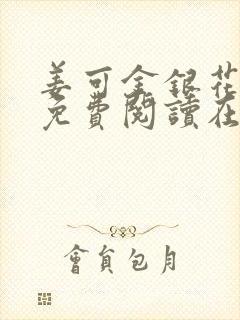 姜可金銀花
免費閱讀在
會員包月